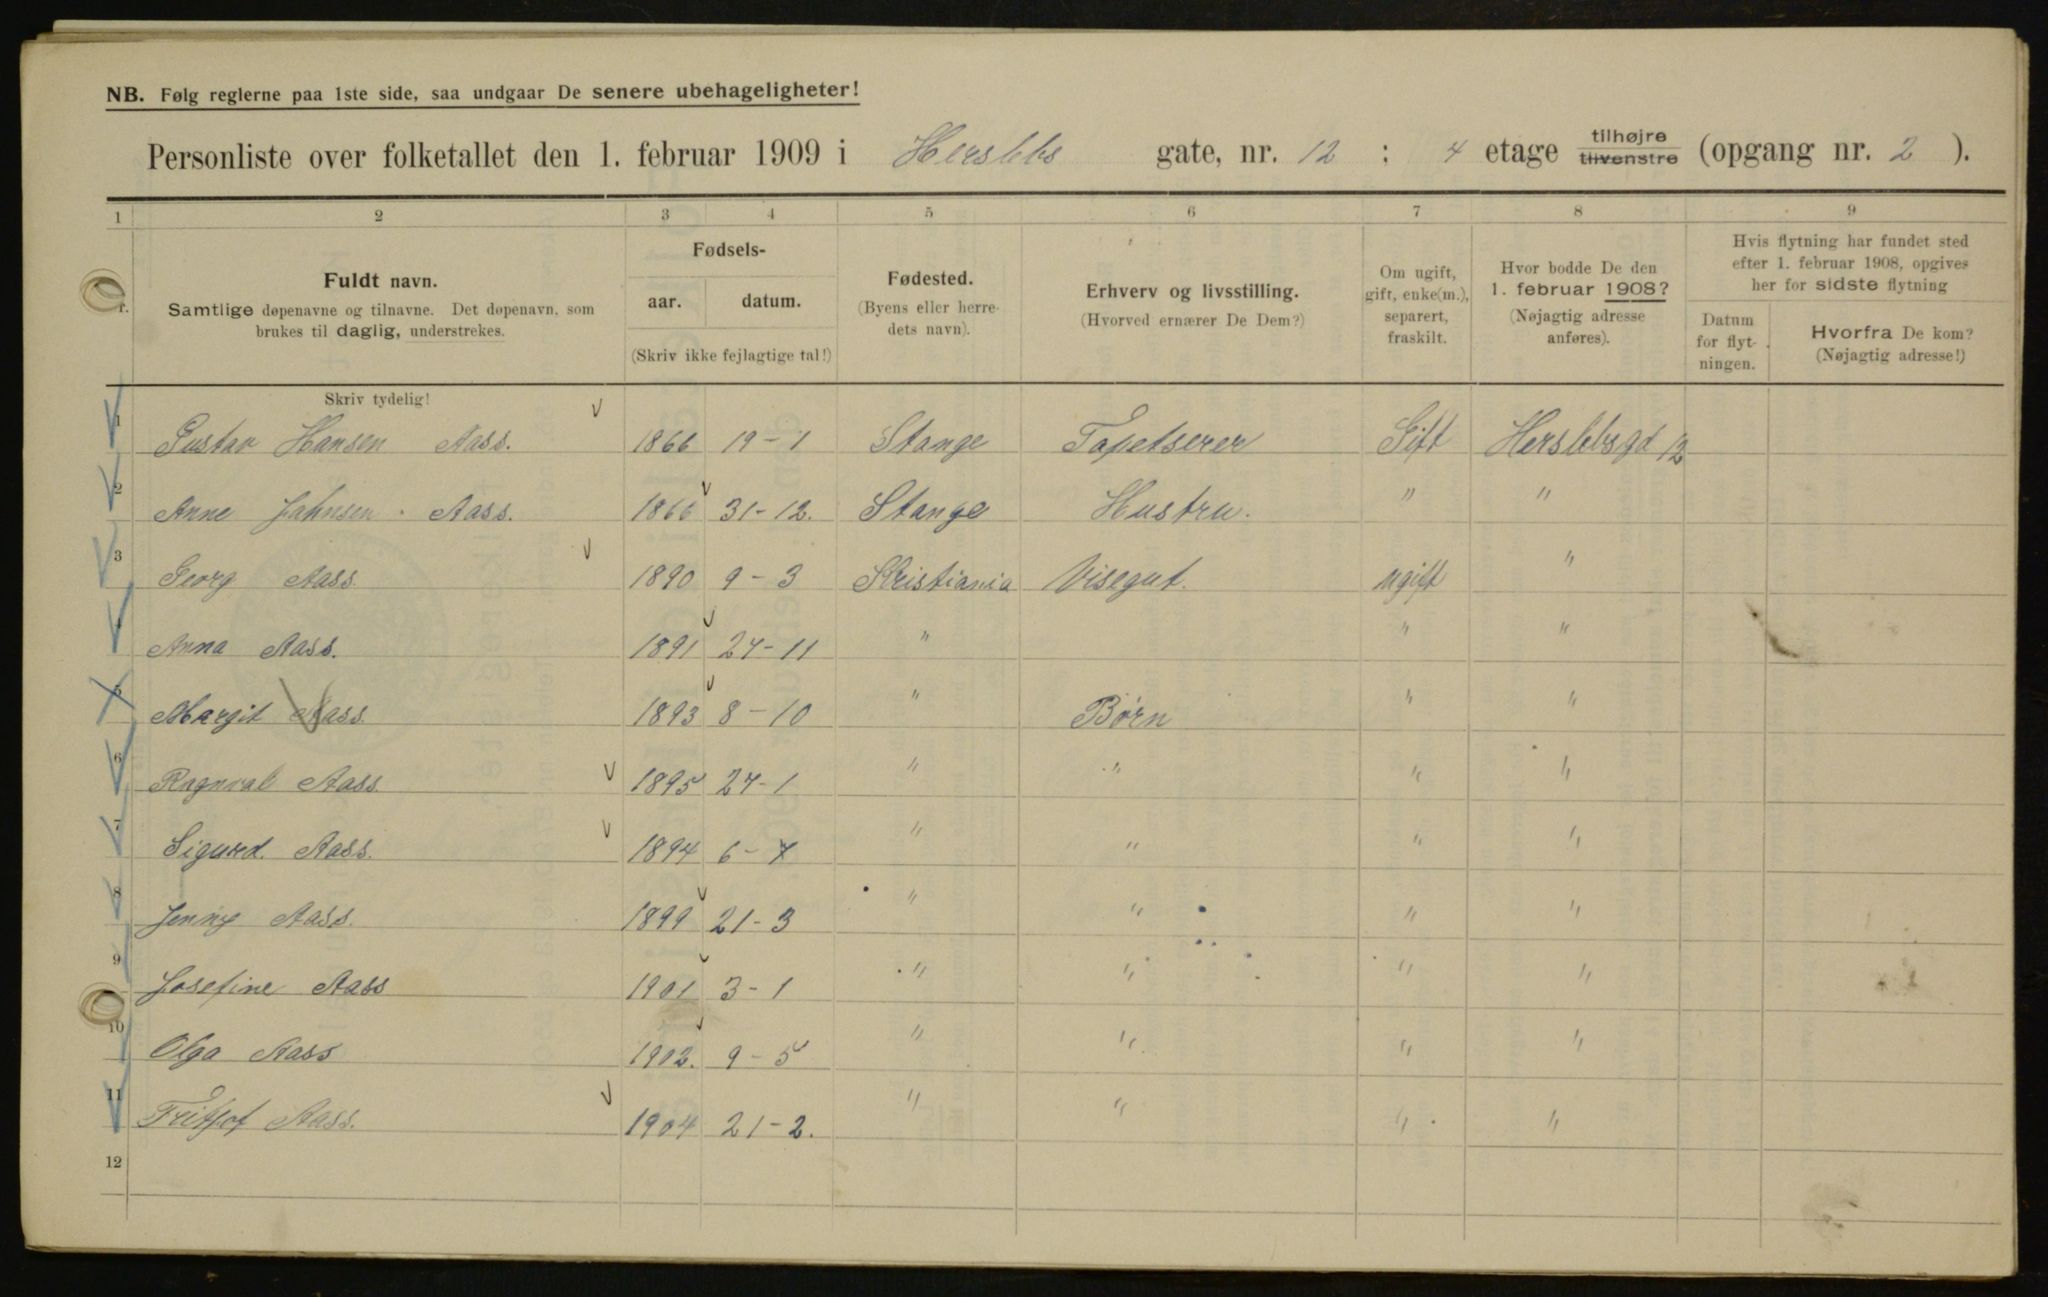 NB. Følg reglerne paa 1ste side, saa undgaar De senere ubehageligheter!
Personliste over folketallet den 1. februar 1909 i Herslebs gate, nr. 12 : 4 etage tilhøjre tilvenstre (opgang nr. 2 ).
1 2 3 4 5 6 7 8 9
Fuldt navn.
Samtlige døpenavne og tilnavne. Det døpenavn, som
brukes til daglig, understrekes.
Fødsels-
aar. datum.
(Skriv ikke fejlagtige tal!)
Fødested.
(Byens eller herre-
dets navn).
Erhverv og livsstilling.
(Hvorved ernærer De Dem?)
Om ugift,
gift, enke(m.),
separert,
fraskilt.
Hvor bodde De den
1. februar 1908?
(Nøjagtig adresse
anføres).
Hvis flytning har fundet sted
efter 1. februar 1908, opgives
her for sidste flytning
Datum
for flyt-
ningen.
Hvorfra De kom?
(Nøjagtig adresse!)
Skriv tydelig!
1 Gustav Hansen Aass. 1866 19-1 Stange Tapetserer Gift Herslebsgd 12
2 Anne Jahnsen. Aass. 1866 31-12. Stange Hustru. " "
3 Georg Aass 1890 9-3 Kristiania Visegut. ugift "
4 Anna Aass. 1891 24-11 " " "
5 Margit Aass. 1893 8-10 " Børn " "
6 Ragnval Aass. 1895 24-1 " " " "
7 Sigurd. Aass. 1894 6-7 " " " "
8 Jenny Aass. 1899 21-3 " " " "
9 Josefine Aass 1901 3-1 " " " "
10 Olga Aass 1902. 9-5 " " " "
11 Fritjof Aass. 1904 21-2. " " " "
12